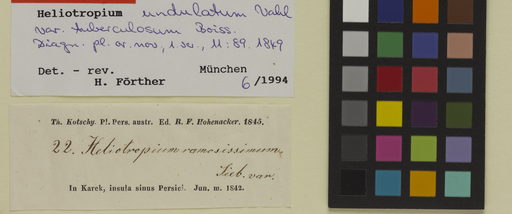 Heliotropium undulatum Vahl
var. tuberculosum Boiss.
Diagn. pl. or. nov., 1. ser., 11: 89. 1849
Det. - rev.
München
H. Förther
6/1994
Th. Kotschy. Pl. Pers. austr. Ed. R. F. Hohenacker. 1845.
22. Heliotropium ramosissimum,
Sieb. var.
In Karek, insula sinus Persici. Jun. m. 1842.